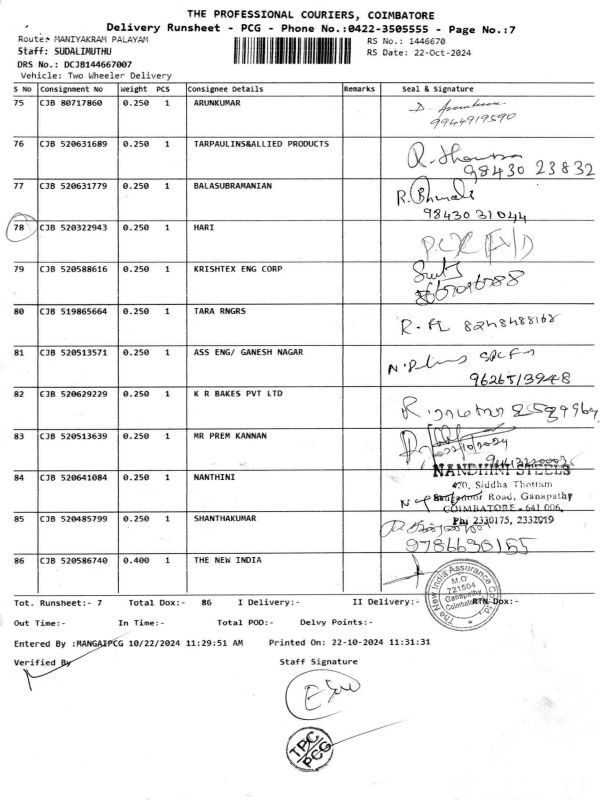 THE PROFESSIONAL COURIERS, COIMBATORE
Delivery Runsheet - PCG - Phone No.:0422-3505555 - Page No.:7
Route: MANIYAKRAM PALAYAM
RS No.: 1446670
Staff: SUDALIMUTHU
RS Date: 22-Oct-2024
DRS No.: DCJB144667007
Vehicle: Two Wheeler Delivery
S No Consignment No Weight PCS Consignee Details Remarks Seal & Signature
75 CJB 80717860 0.250 1 ARUNKUMAR
9944919590
76 CJB 520631689 0.250 1 TARPAULINS&ALLIED PRODUCTS
98430 23832
77 CJB 520631779 0.250 1 BALASUBRAMANIAN
98430 31044
78 CJB 520322943 0.250 1 HARI
79 CJB 520588616 0.250 1 KRISHTEX ENG CORP
80 CJB 519865664 0.250 1 TARA RNGRS
8248488168
81 CJB 520513571 0.250 1 ASS ENG/ GANESH NAGAR
9626513948
82 CJB 520629229 0.250 1 K R BAKES PVT LTD
83 CJB 520513639 0.250 1 MR PREM KANNAN
22/10/2024
NANDHINI STEELS
84 CJB 520641084 0.250 1 NANTHINI
420, Siddha Thottam
Road, Ganapathy
COIMBATORE - 641 006.
85 CJB 520485799 0.250 1 SHANTHAKUMAR
Ph: 2330175, 2332019
9786630155
86 CJB 520586740 0.400 1 THE NEW INDIA
The New India Assurance Co. Ltd.
M.O
721504
Ganapathy
Coimbatore
Tot. Runsheet:- 7 Total Dox:- 86 I Delivery:- II Delivery:- RTN Dox:-
Out Time:- In Time:- Total POD:- Delvy Points:-
Entered By :MANGAIPCG 10/22/2024 11:29:51 AM Printed On: 22-10-2024 11:31:31
Verified By Staff Signature
TPC
PCG